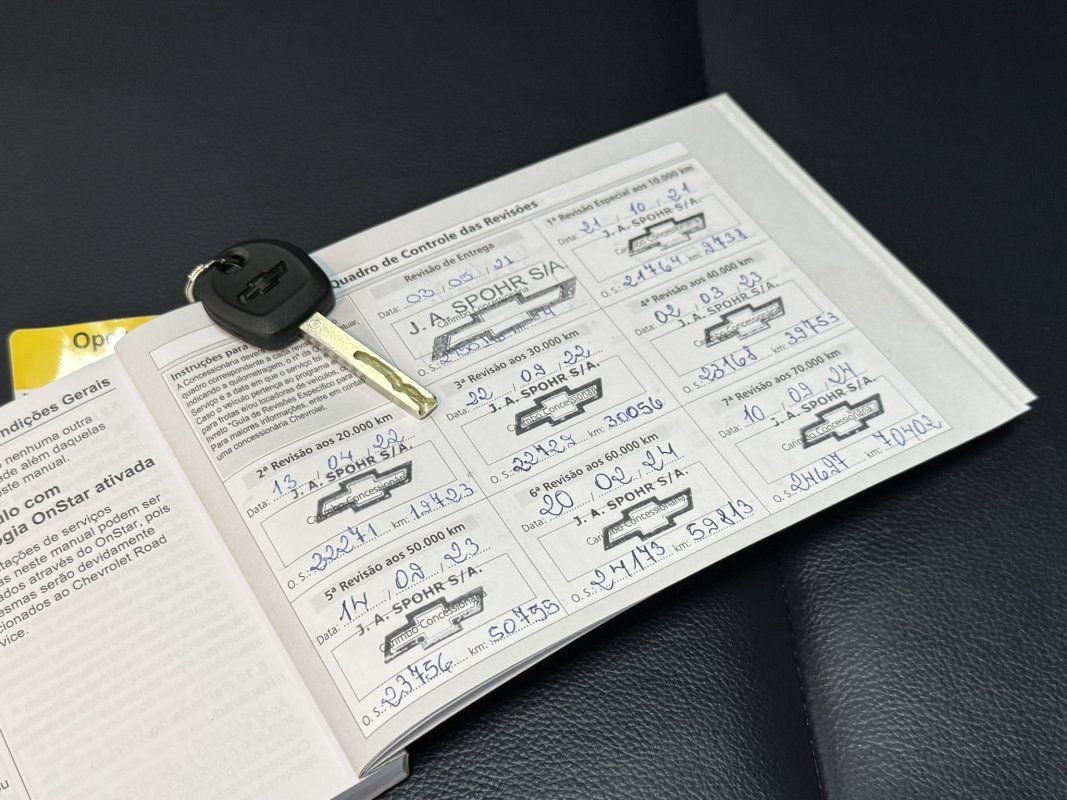 Quadro de Controle das Revisões
Instruções para
A Concessionária deverá
quadro correspondente a cada
indicando a quilometragem, o nº da
Serviço e a data em que o serviço foi
Caso o veículo pertença ao programa
para frotas e/ou locadoras de veículos,
livreto "Guia de Revisões Específico para
Para maiores informações, entre em
uma concessionária Chevrolet.
Revisão de Entrega
Data: 03 / 05 / 21
J. A. SPOHR S/A
Carimbo Concessionária
1ª Revisão Especial aos 10.000 km
Data: 21 / 10 / 21
J. A. SPOHR S/A.
Carimbo Concessionária
O. S.: 21764 km: 9738
2ª Revisão aos 20.000 km
Data: 13 / 04 / 22
J. A. SPOHR S/A.
Carimbo Concessionária
O. S.: 22271 km: 19723
3ª Revisão aos 30.000 km
Data: 22 / 09 / 22
J. A. SPOHR S/A.
Carimbo Concessionária
O. S.: 22727 km: 30056
4ª Revisão aos 40.000 km
Data: 02 / 03 / 23
J. A. SPOHR S/A.
Carimbo Concessionária
O. S.: 23168 km: 39753
5ª Revisão aos 50.000 km
Data: 14 / 09 / 23
J. A. SPOHR S/A.
Carimbo Concessionária
O. S.: 23756 km: 50755
6ª Revisão aos 60.000 km
Data: 20 / 02 / 24
J. A. SPOHR S/A.
Carimbo Concessionária
O. S.: 24173 km: 59813
7ª Revisão aos 70.000 km
Data: 10 / 09 / 24
J. A. SPOHR S/A.
Carimbo Concessionária
O. S.: 24697 km: 70402
ndições Gerais
nenhuma outra
ade além daquelas
este manual.
ulo com
ogia OnStar ativada
tações de serviços
as neste manual podem ser
ados através do OnStar, pois
esmas serão devidamente
cionados ao Chevrolet Road
vice.